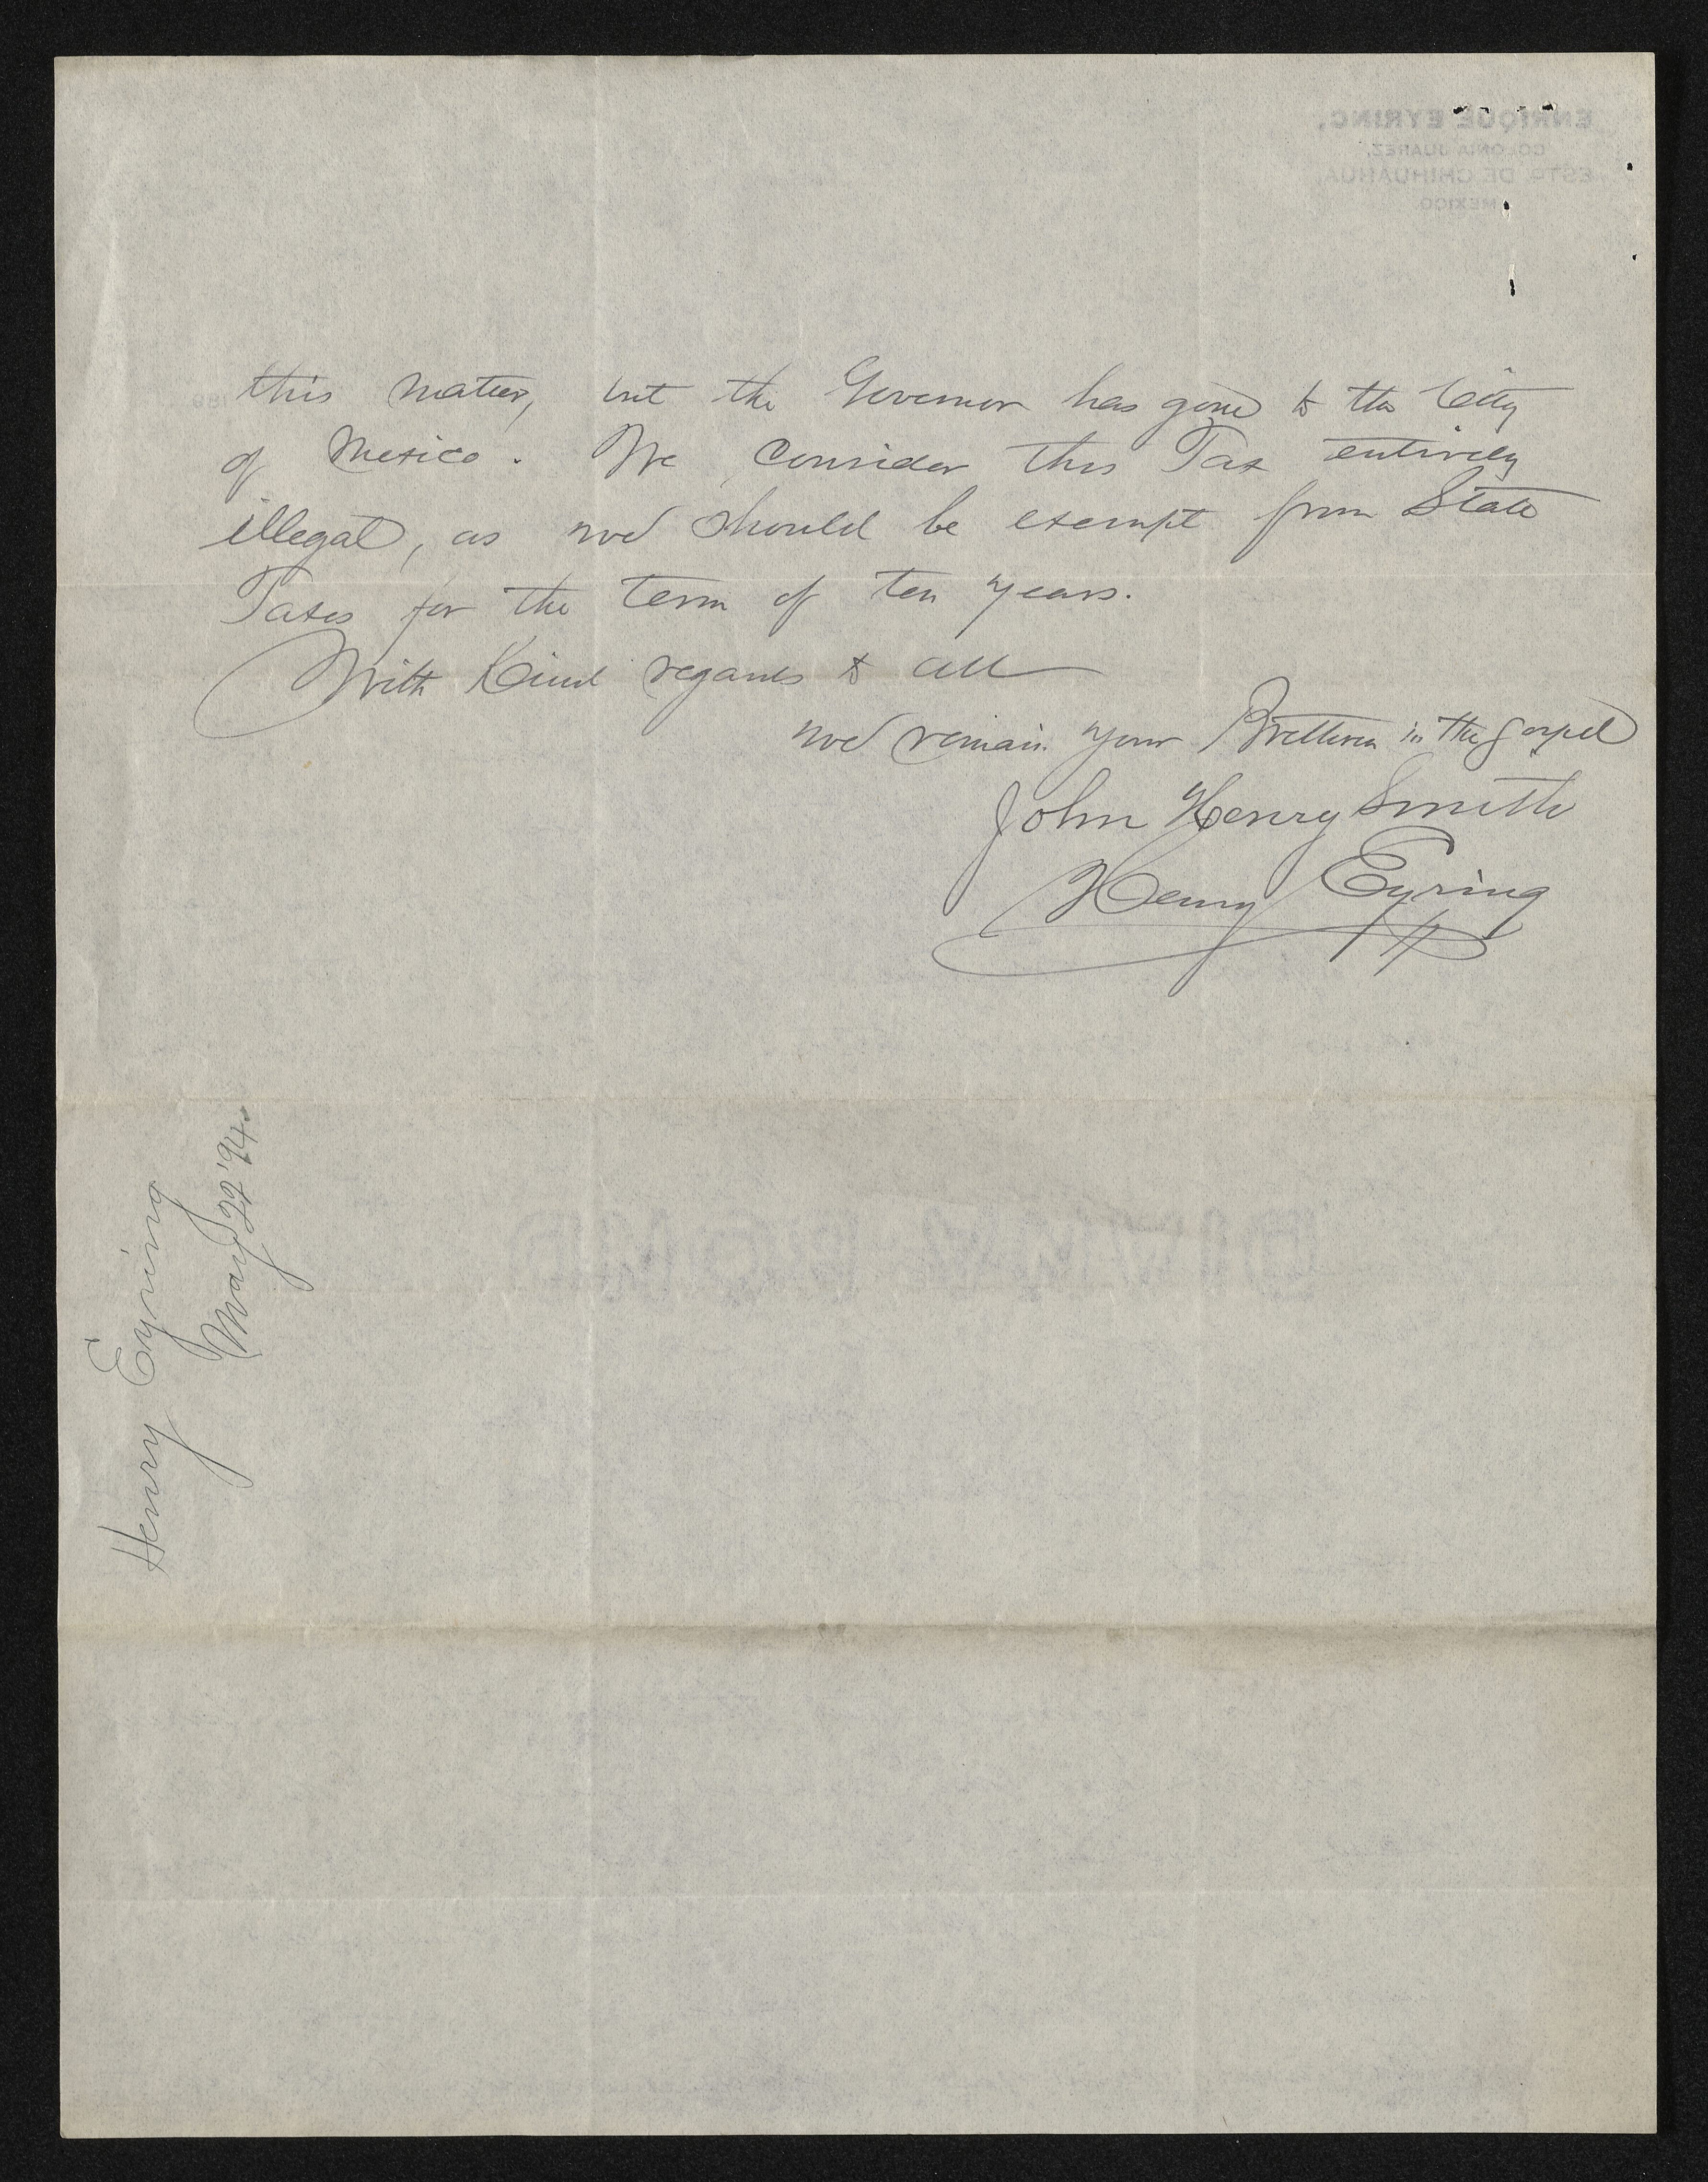 ENRIQUE EYRING,
COLONIA JUAREZ,
ESTO. DE CHIHUAHUA,
MEXICO
this matter, but the Governor has gone to the City
of Mexico. We consider this Tax entirely
illegal, as we should be exempt from State
Taxes for the term of ten years.
With Kind regards to all
we remain your Brethren in the gospel
John Henry Smith
Henry Eyring
Henry Eyring
May 22 '94.